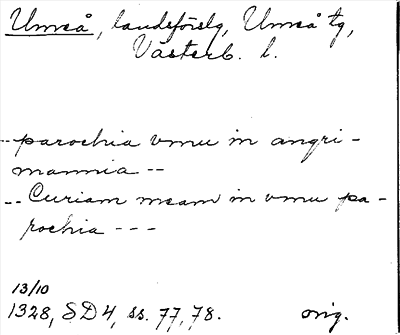 Umeå, landsförslg, Umeå tg,
Västerb. l.
-- parochia vmu in angri-
mannia --
-- Curiam meam in vmu pa-
rochia ---
13/10
1328, SD 4, ss. 77, 78. orig.